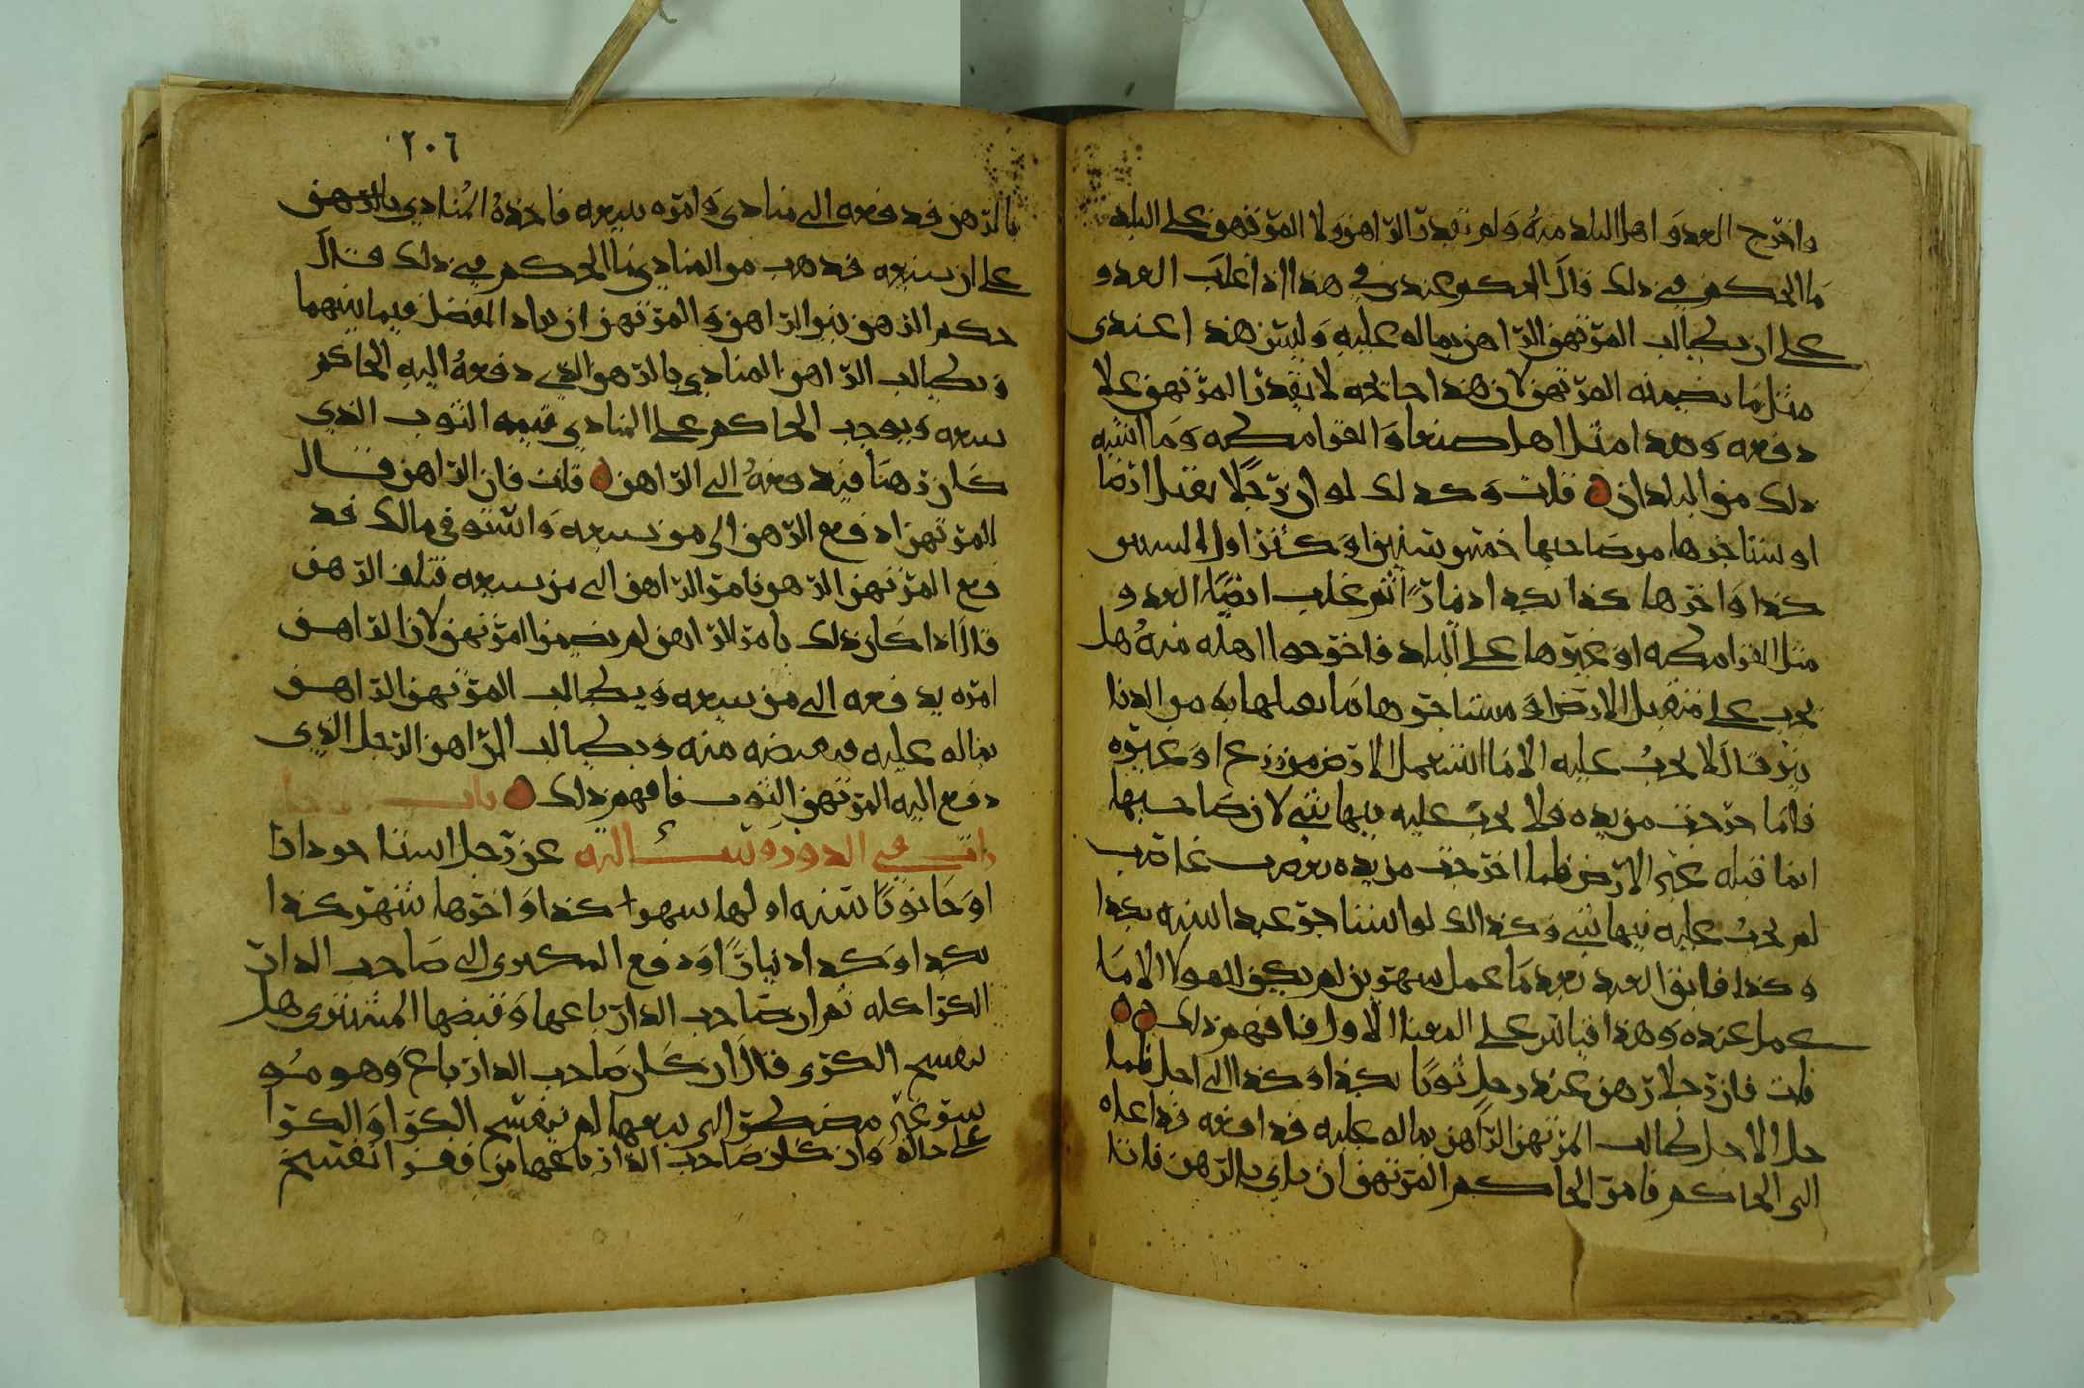 واخرج العدو اهل البلد منه ولم يقدر الراهن ولا المرتهن على البلد
ما الحكم في ذلك قال الحكم عندي في هذا اذا غلب العدو
على ان يطالب المرتهن الراهن بماله عليه وليس هذا عندي
مثل ما يضمنه المرتهن لان هذا جائحه لا يقدر المرتهن على
دفعه وهذا مثل اهل صنعا والقرامطه وما اشبه
ذلك من البلدان قلت وكذلك لو ان رجلا يقبل ارضا
او يستاجرها من صاحبها خمس سنين او اكثر اول السنين
كذا واخرها كذا بكذا دينارا ثم غلب ايضا العدو
مثل القرامطه او غيرها على البلد فاخرجوا اهله منه هل
يجب على متقبل الارض او مستاجرها ما يقبلها به من الدنا
نير قال لا يجب عليه الا ما استعمل الارض من زرع او غيره
فاما خرجت من يده فلا يجب عليه فيها شي لان صاحبها
انما قبله غير الارض فلما اخرجت من يده بغصب غاصب
لم يجب عليه فيها شي وكذلك لو استاجر عبدا سنه بكذا
وكذا فابق العبد بعد ما عمل شهرين لم يكن للمولا الا ما
عمل عنده وهذا قياس على المعنا الاول فافهم ذلك
قلت فان رجلا رهن عند رجل ثوبا بكذا وكذا الى اجل فلما
حل الاجل طالب المرتهن الراهن بماله عليه فدافعه فداعاه
الى الحاكم فامر الحاكم المرتهن ان ياتي بالرهن فاتا
٢٠٦
بالرهن فدفعه الى منادي وامره ببيعه فاخذه المنادي بالرهن
على ان يبيعه فذهب من المنادي ما الحكم في ذلك قال
حكم الرهن بين الراهن والمرتهن ان يرادا الفضل فيما بينهما
ويطالب الراهن المنادي بالرهن الذي دفعه اليه الحاكم
يبيعه ويوجب الحاكم على المنادي قيمه الثوب الذي
كان رهنا فيدفعه الى الراهن قلت فان الراهن قال
للمرتهن ادفع الرهن الى من يبيعه واستوفي مالك فد
فع المرتهن الرهن بامر الراهن الى من يبيعه فتلف الرهن
قال اذا كان ذلك بامر الراهن لم يضمن المرتهن لان الراهن
امره يدفعه الى من يبيعه ويطالب المرتهن الراهن
بماله عليه فيقبضه منه ويطالب الراهن الرجل الذي
دفع اليه المرتهن الثوب فافهم ذلك باب
في الدور وسالته عن رجل استاجر دارا
او حانوتا سنه اولها شهر كذا واخرها شهر كذا
بكذا وكذا دينارا ودفع المكتري الى صاحب الدار
الكرا كله ثم ان صاحب الدار باعها وقبضها المشتري هل
ينفسخ الكري قال ان كان صاحب الدار باع وهو مو
سر غير مضطر الى بيعها لم ينفسخ الكرا والكرا
على حاله وان كان صاحب الدار باعها من فقر انفسخ